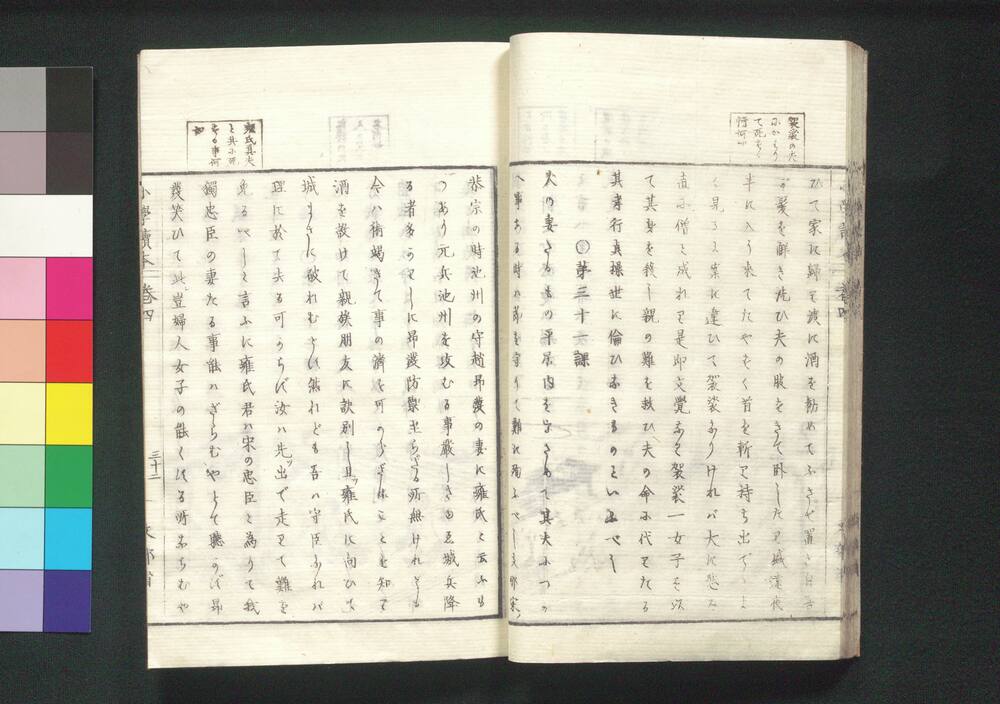 袈裟の夫
にかはり
て死せし
行何如
ひて家に歸し渡に酒を勸めてふさせ置き
髪を解き先ひ夫の服をきて臥したり盛遠夜
半に入り来てたやすく首を斬り持ち出で
見るに案に違ひて袈裟なりければ大に悲み
直に僧と成れり是即文覺なり袈裟一女子を以
て其身を殺し親の難を救ひ夫の命に代りたる
其孝行貞操世に倫ひなきものといふべし
第三十六課
人の妻たるもの平居内を守さめて其夫につか
へ事ある時は節を守りて難に殉ふべし
雍氏其夫
と共に死
する事何
如
恭宗の時池州の守趙昻發の妻に雍氏と云ふも
のあり元兵池州を攻むる事嚴しき由ゑ城兵降
る者多かりしに昻發防禦至らざる所無けれども
今ハ術竭きて事の濟を可からざることを知り
酒を設けて親族朋友に訣別し且ッ雍氏に向ひて
城まさに破れむとす然れども吾ハ守臣なれバ
理に於て去る可からず汝ハ先ッ出で走りて難を
免るべしと言ふに雍氏君ハ宋の忠臣と為りて我
獨忠臣の妻たる事能ハざらむやとて聽かず昻
發笑ひて此豈婦人女子の能くする所ならむや
小學讀本 卷四
三十二
文部省